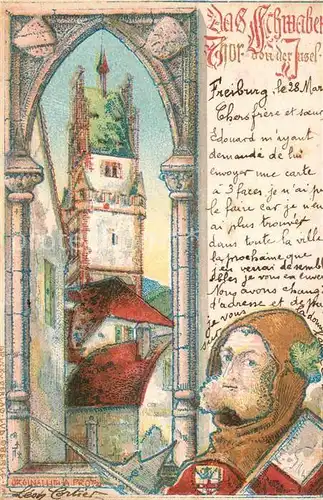 Das Schwaben
Thor von der Insel
Freiburg, le 28 Mar
Chers frère et soeur
Edouard m'ayant
demandé de lui
envoyer une carte
à 3 faces je n'ai pu
le faire car je n'en
ai plus trouvé
dans toute la ville
la prochaine que
j'en verrai de sembl
ables je vous en enver
Nous avons changé
d'adresse et de
je vous
ORIGINALLITH. A.
Léon